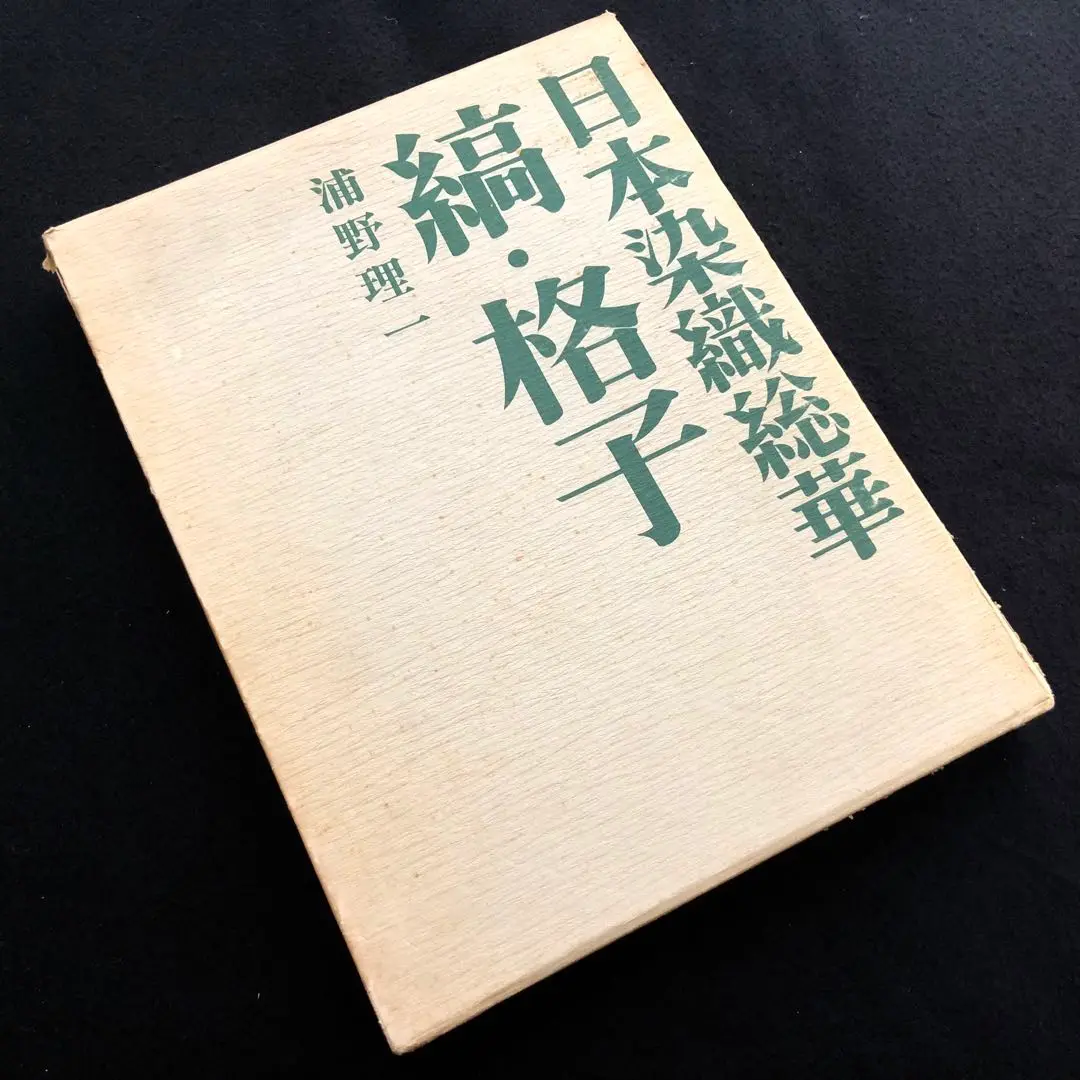 日本染織総華
縞・格子
浦野理一